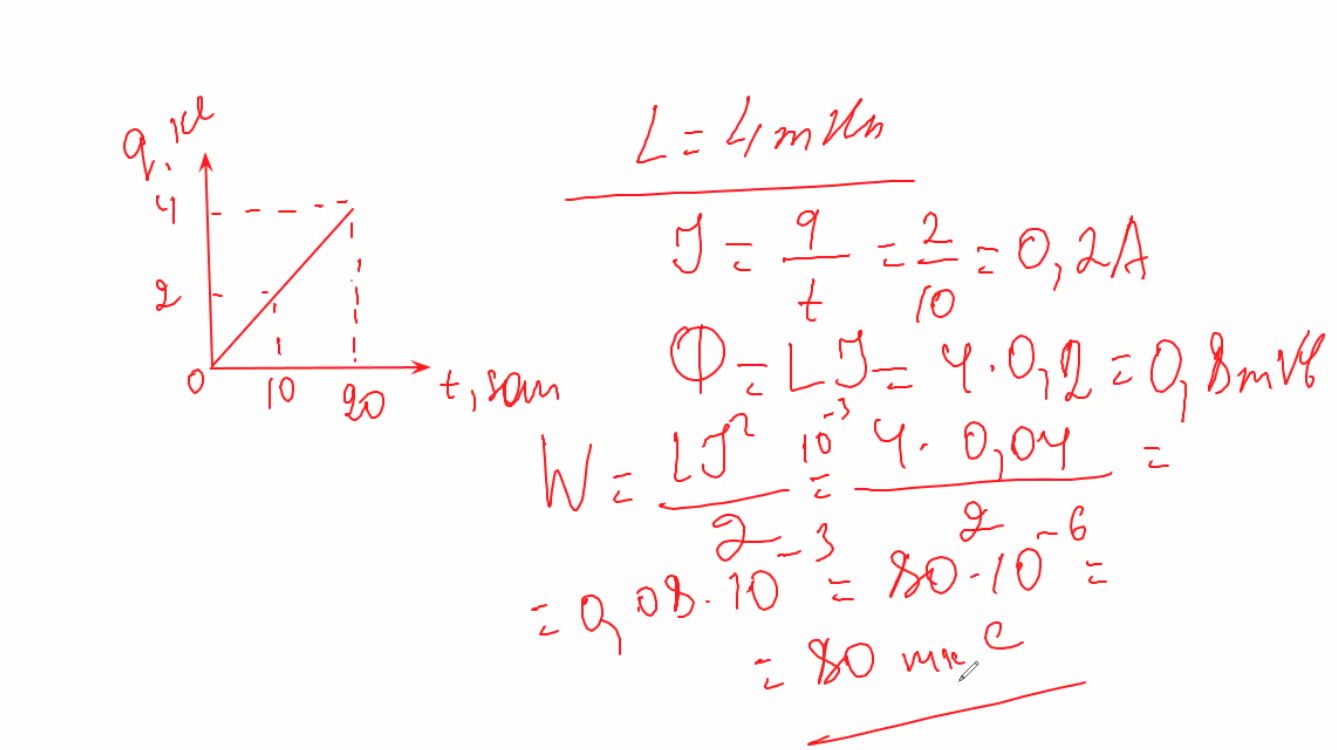 q, Kl
4
2
0
10
20
t, san
L = 4 mHn
J = q/t = 2/10 = 0,2A
Φ = LJ = 4·0,2 = 0,8 mVb
W = LJ²/2 = 10⁻³ 4·0,04/2 =
= 0,08·10⁻³ = 80·10⁻⁶ =
= 80 mk C